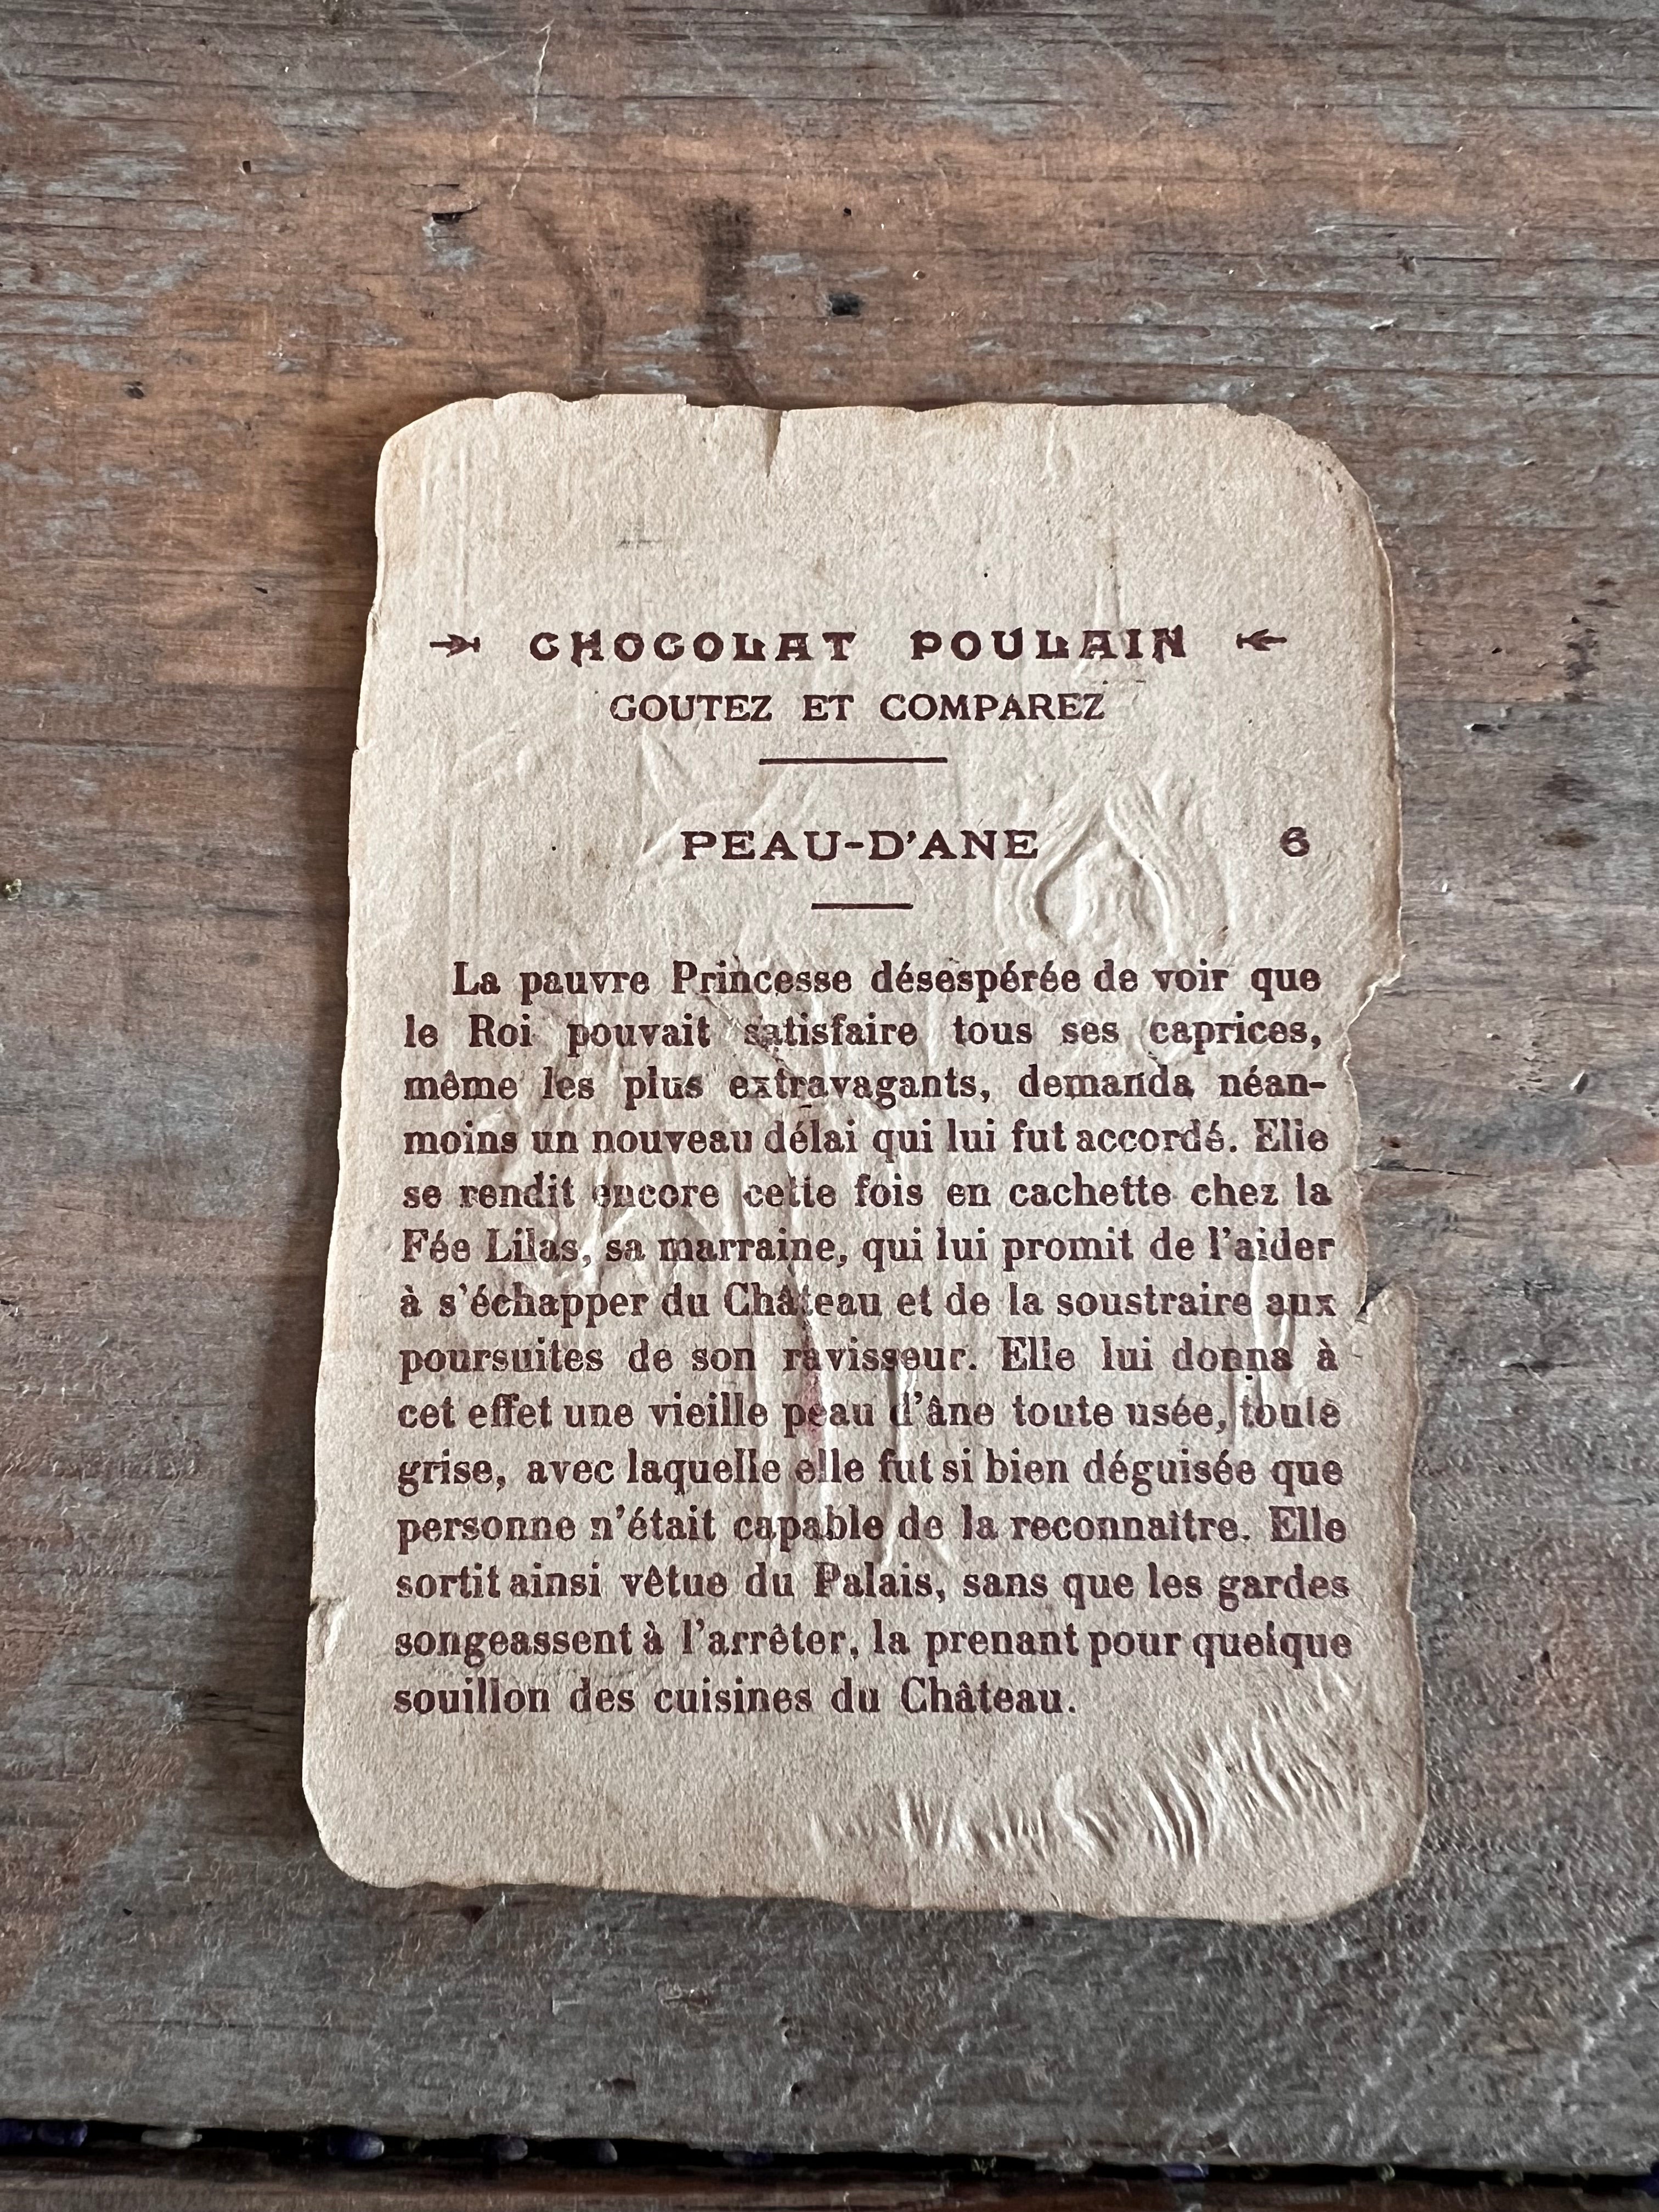 CHOCOLAT POULAIN
GOUTEZ ET COMPAREZ
PEAU-D'ANE 6
La pauvre Princesse désespérée de voir que
le Roi pouvait satisfaire tous ses caprices,
même les plus extravagants, demanda néan-
moins un nouveau délai qui lui fut accordé. Elle
se rendit encore cette fois en cachette chez la
Fée Lilas, sa marraine, qui lui promit de l'aider
à s'échapper du Château et de la soustraire aux
poursuites de son ravisseur. Elle lui donna à
cet effet une vieille peau d'âne toute usée, toute
grise, avec laquelle elle fut si bien déguisée que
personne n'était capable de la reconnaître. Elle
sortit ainsi vêtue du Palais, sans que les gardes
songeassent à l'arrêter, la prenant pour quelque
souillon des cuisines du Château.